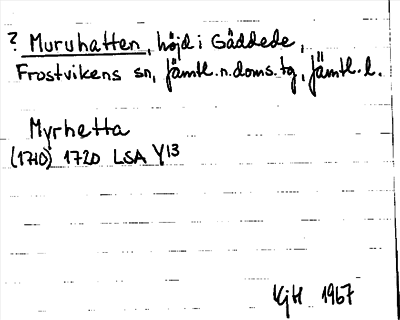 ? Muruhatten, höjd i Gäddede,
Frostvikens sn, Jämtl. n. doms. tg, Jämtl. l.
Myrhetta
(1710) 1720 LSA Y13
KjH 1967